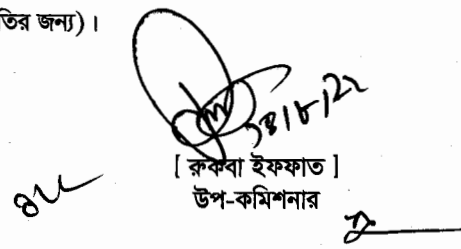 তির জন্য)।
[ রুকবা ইফফাত ]
উপ-কমিশনার